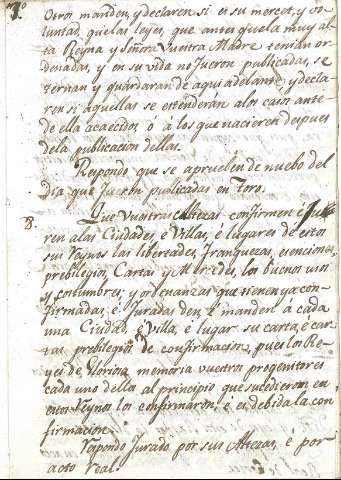 7º
Otrosi manden, y declaren si es su merced, y vo-
luntad, que las leyes, que antes quela muy al-
ta Reyna y Señora Vuestra Madre tenian or-
denadas, y en su vida no fueron publicadas, se
ternan y guardaran de aqui adelante, y decla-
ren si aquellas se estenderan alos casos ante-
de ella acaecidos, ó á los que nacieren despues
dela publicacion dellas.
Respondo que se aprueben de nuebo del
dia que fueron publicadas en Toro.
8. Que Vuestras Altezas confirmen é Ju-
ren alas Ciudades, é Villas, é lugares de estos
sus Reynos las libertades, franquezas, esenciones,
prebilegios, Cartas y Mercedes, los buenos usos
y costumbres, y ordenanzas que tienen ya con-
firmadas, é Juradas den, é manden á cada
una Ciudad, é Villa, é lugar su carta, é car-
tas prebilegios de confirmacion, pues los Re-
yes de gloriosa memoria vuestros progenitores
cada uno dellos al principio que sucedieron en
estos Reynos los confirmaron, é es debida la con-
firmacion.
Respondo Jurado por sus Altezas, é por
acto Real.